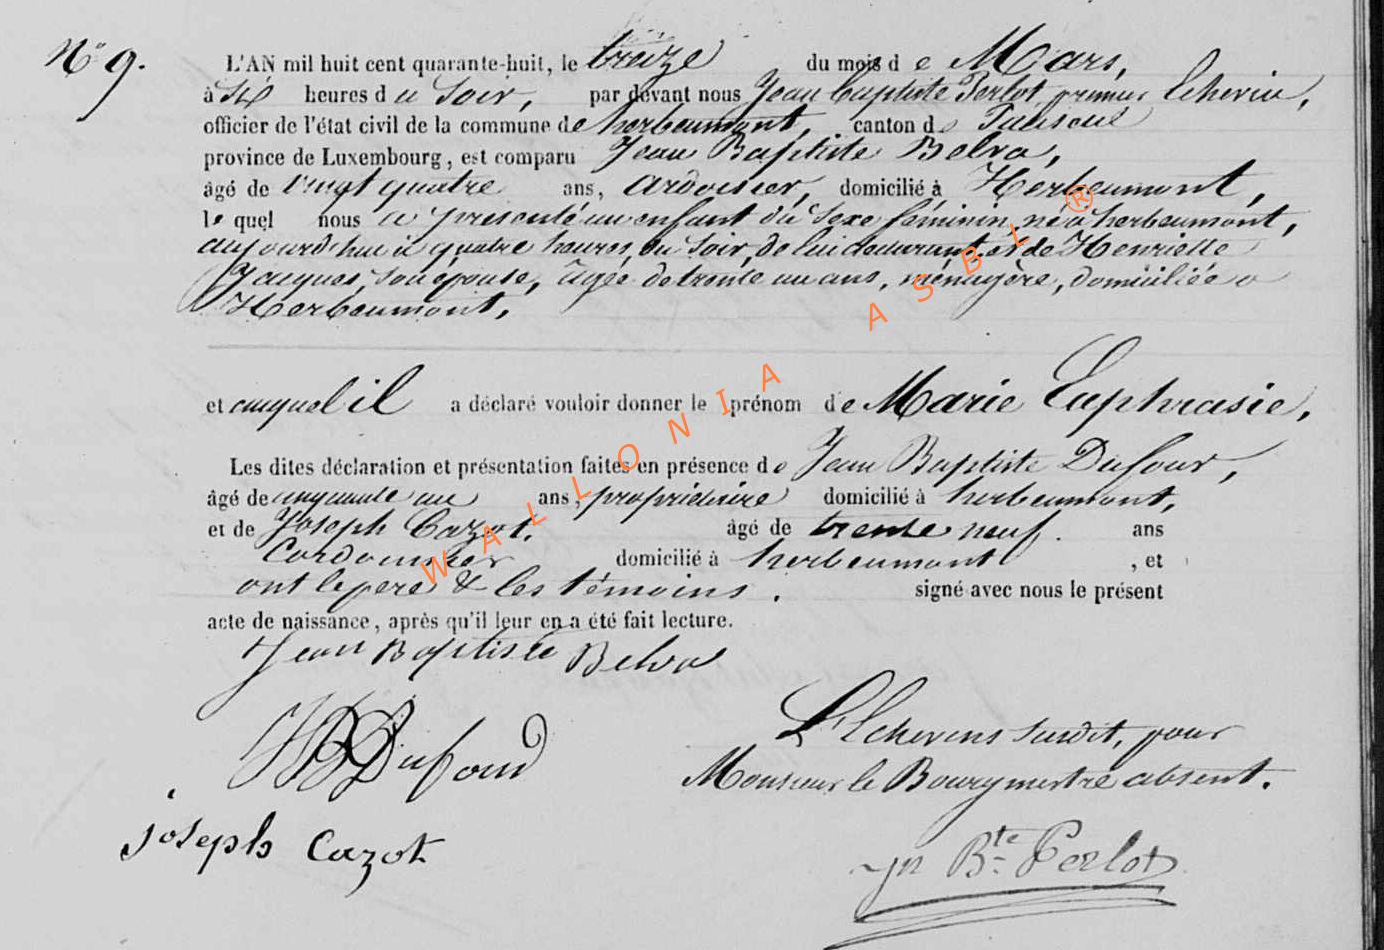 N° 9.
L'AN mil huit cent quarante-huit, le treize du mois de Mars,
à six heures du Soir, par devant nous Jean Baptiste Perlot, premier Echevin,
officier de l'état civil de la commune de herbeumont, canton de Paliseul
province de Luxembourg, est comparu Jean Baptiste Belva,
âgé de vingt quatre ans, ardoisier, domicilié à Herbeumont,
lequel nous a presenté un enfant du sexe féminin, né à herbeumont,
aujourdhui à quatre heures du Soir, de lui déclarant et de Henriette
Jacques, son épouse, âgée de trente un ans, ménagère, domiciliée à
Herbeumont,
et auquel il a déclaré vouloir donner le prénom de Marie Euphrasie,
Les dites déclaration et présentation faites en présence de Jean Baptiste Dufour,
âgé de cinquante un ans, propriétaire domicilié à herbeumont,
et de Joseph Cozot, âgé de trente neuf ans
Cordonnier domicilié à herbeumont, et
ont le pere & les témoins. signé avec nous le présent
acte de naissance, après qu'il leur en a été fait lecture.
Jean Baptiste Belva
JB Dufour
L'Echevins susdit, pour
Monsieur le Bourgmestre absent.
joseph Cozot
Jn Bte Perlot
WALLONIA ASBL ®